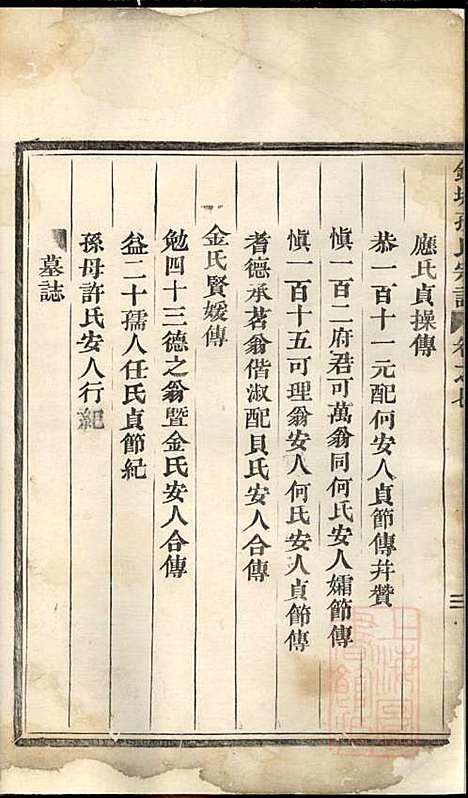 孫氏宗譜 卷之七
三
應氏貞操傳
恭一百十一元配何安人貞節傳并贊
愼一百二府君可萬翁同何氏安人孀節傳
愼一百十五可理翁安人何氏安人貞節傳
耆德承茗翁偕淑配貝氏安人合傳
金氏賢媛傳
勉四十三德之翁暨金氏安人合傳
益二十孺人任氏貞節紀
孫母許氏安人行紀
墓誌